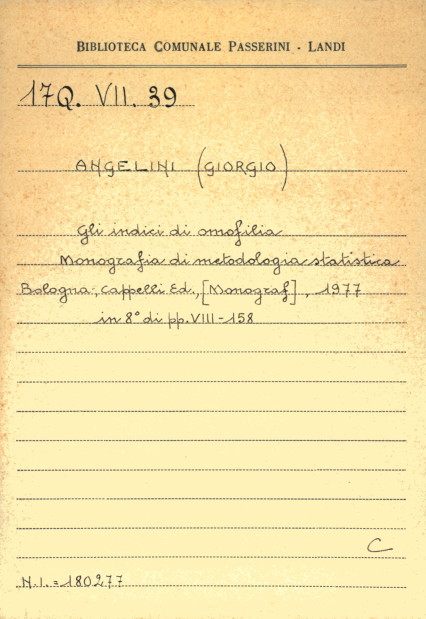 BIBLIOTECA COMUNALE PASSERINI - LANDI
17Q. VII. 39
ANGELINI (GIORGIO)
Gli indici di omofilia
Monografia di metodologia statistica
Bologna, Cappelli Ed., [Monograf], 1977
in 8° di pp. VIII-158
C
N.I. = 180277